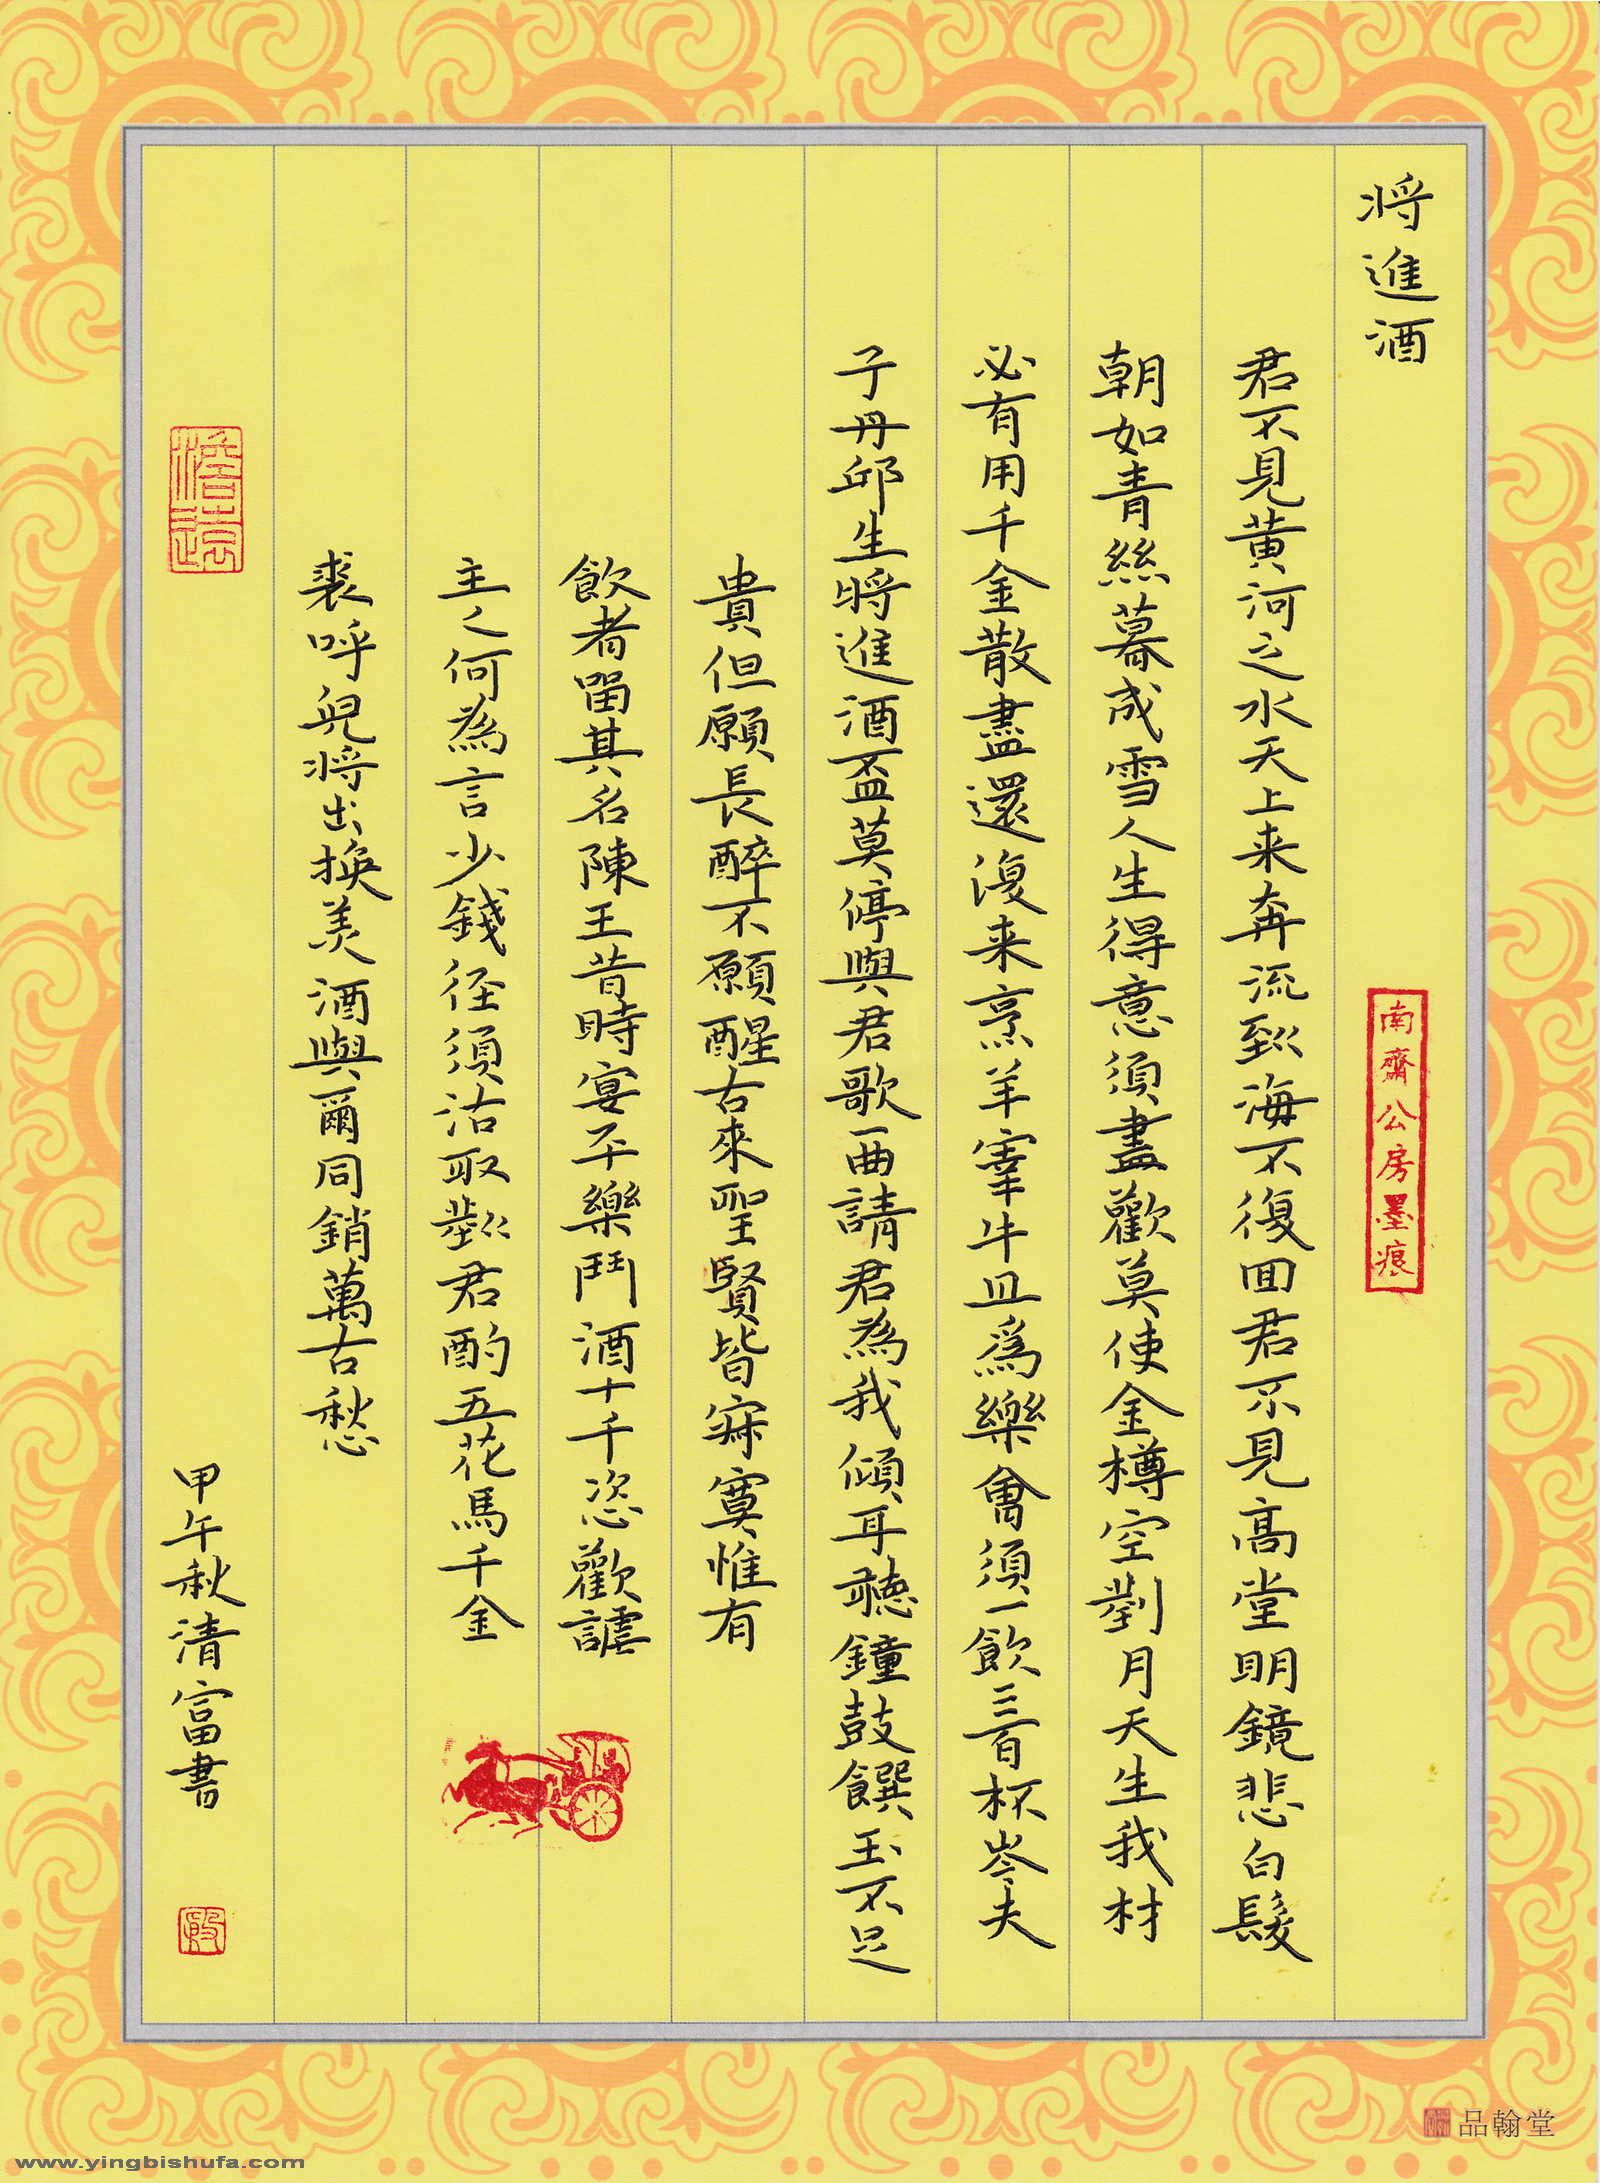 將進酒
南齋公房墨痕
君不見黃河之水天上来奔流到海不復回君不見高堂明鏡悲白髮
朝如青絲暮成雪人生得意須盡歡莫使金樽空對月天生我材
必有用千金散盡還復来烹羊宰牛且為樂會須一飲三百杯岑夫
子丹邱生將進酒盃莫停與君歌一曲請君為我傾耳聽鐘鼓饌玉不足
貴但願長醉不願醒古來聖賢皆寂寞惟有
飲者留其名陳王昔時宴平樂鬥酒十千恣歡謔
主人何為言少錢徑須沽取對君酌五花馬千金
裘呼兒將出換美酒與爾同銷萬古愁
甲午秋清富書
品翰堂
www.yingbishufa.com